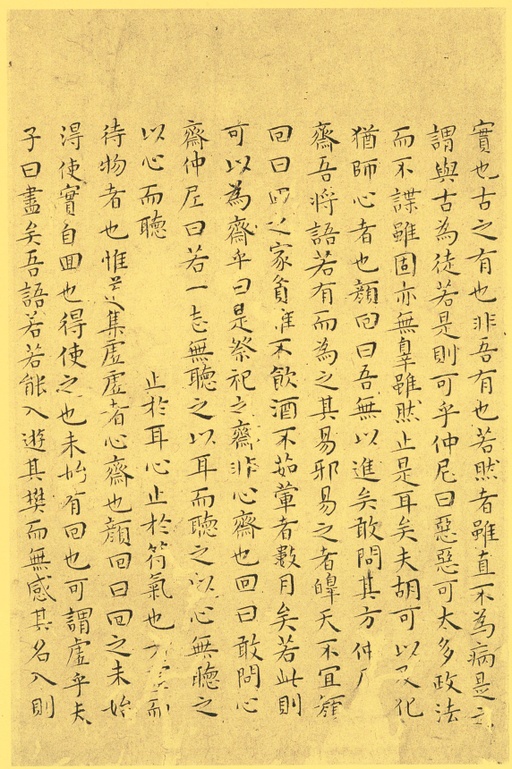 實也古之有也非吾有也若然者雖直不為病是之
謂與古為徒若是則可乎仲尼曰惡惡可太多政法
而不諜雖固亦無辠雖然止是耳矣夫胡可以及化
猶師心者也顔回曰吾無以進矣敢問其方仲尼
齋吾將語若有而為之其易邪易之者皡天不宜顔
回曰回之家貧唯不飲酒不茹葷者數月矣若此則
可以為齋乎曰是祭祀之齋非心齋也回曰敢問心
齋仲尼曰若一志無聽之以耳而聽之以心無聽之
以心而聽 止於耳心止於符氣也 而
待物者也惟道集虛虛者心齋也顔回曰回之未始
淂使實自回也得使之也未始有回也可謂虛乎夫
子曰盡矣吾語若若能入遊其樊而無感其名入則